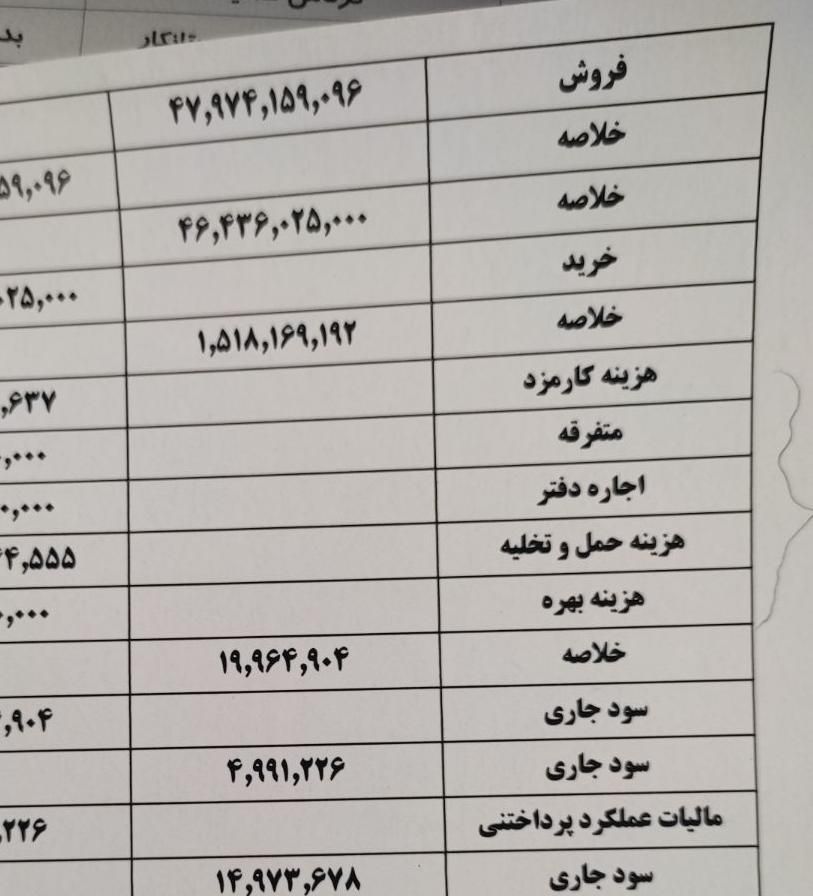 بد
فروش ۴۷,۹۷۴,۱۵۹,۰۹۶
خلاصه ۵۹,۰۹۶
خلاصه ۴۶,۴۳۶,۰۲۵,۰۰۰
خرید ۰۲۵,۰۰۰
خلاصه ۱,۵۱۸,۱۶۹,۱۹۲
هزینه کارمزد ,۶۳۷
متفرقه ,۰۰۰
اجاره دفتر ۰,۰۰۰
هزینه حمل و تخلیه ۴,۵۵۵
هزینه بهره ۰,۰۰۰
خلاصه ۱۹,۹۶۴,۹۰۴
سود جاری ,۹۰۴
سود جاری ۴,۹۹۱,۲۲۶
مالیات عملکرد پرداختنی ,۲۲۶
سود جاری ۱۴,۹۷۳,۶۷۸